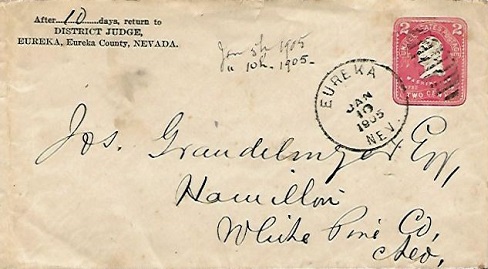 After 10 days, return to
DISTRICT JUDGE,
EUREKA, Eureka County, NEVADA.
Jan 5th 1905
" 10th - 1905.
EUREKA
JAN
10
1905
NEV.
2 2
TWO CENTS
Jos. Grandelmyer Esq,
Hamilton
White Pine Co,
Nev.